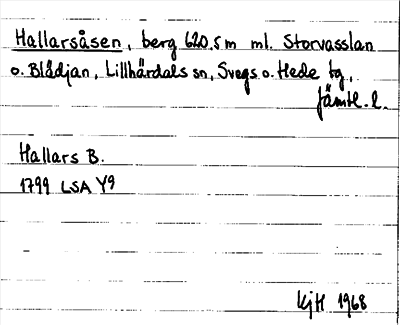 Hallarsåsen, berg 620.5 m ml. Storvasslan
o. Blädjan, Lillhärdals sn, Svegs o. Hede tg,
Jämtl. l.
Hallars B.
1799 LSA Y9
KjH 1968